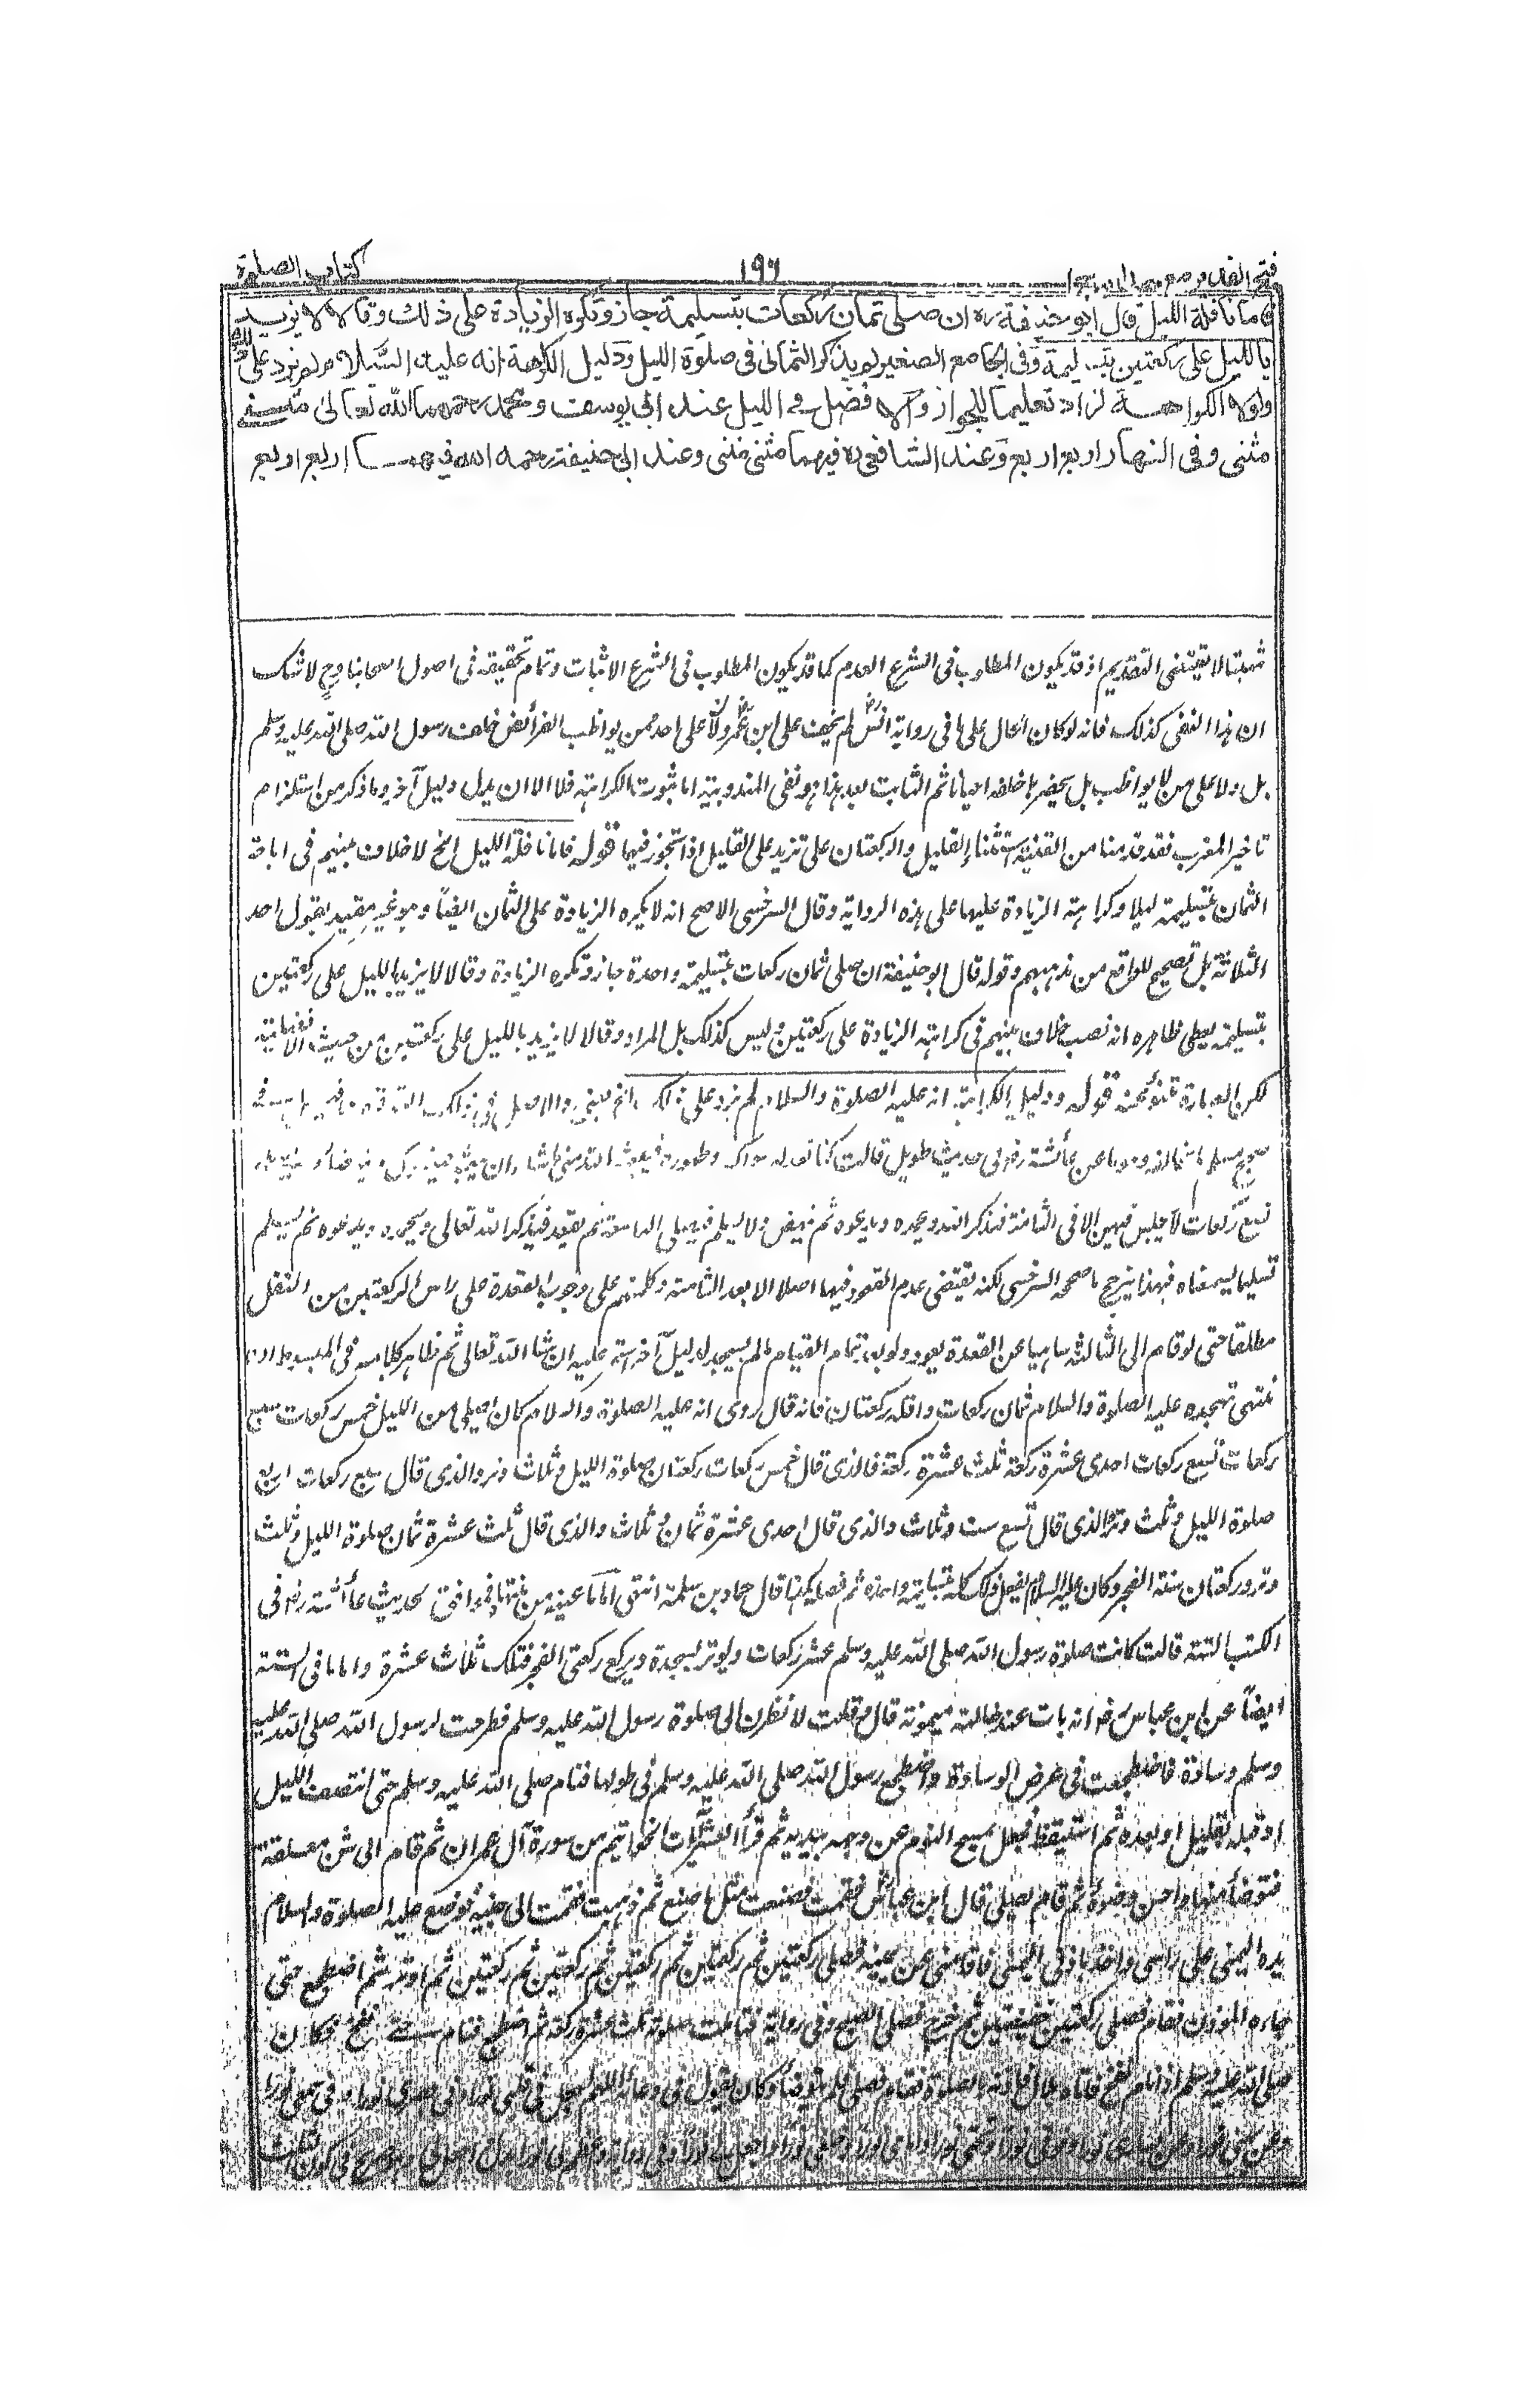 كتاب الصلوة
١٩٦
فتح القدير مع
فاما نافلة الليل قال ابو حنيفة ره ان صلى ثمان ركعات بتسليمة جاز وتكره الزيادة على ذلك وقالا لا يزيد
بالليل على ركعتين بتسليمة وفى الجامع الصغير لم يذكر الثمانى فى صلوة الليل ودليل الكراهة انه عليه السلام لم يزد على ذلك
ولولا الكراهة لزاد تعليما للجواز والافضل فى الليل عند ابى يوسف ومحمد رحمهما الله تعالى مثنى
مثنى وفى النهار اربع اربع وعند الشافعى ره فيهما مثنى مثنى وعند ابى حنيفة رحمه الله فيهما اربع اربع
مثبتا لا يقتضى التقديم اذ قد يكون المطلوب فى الشرع العدم كما قد يكون المطلوب فى الشرع الاثبات وتمام تحقيقه فى اصول اصحابنا وح لا شك
ان هذا النفى كذلك فانه لو كان الحال على ما فى رواية انس لم يخف على ابن عمر ولا على احد ممن يواظب الفرائض خلف رسول الله صلى الله عليه وسلم
بل ولا على من لا يواظب بل يحضرها خلفه احيانا ثم الثابت بعد هذا هو نفى المندوبية اما ثبوت الكراهة فلا الا ان يدل دليل آخر وما ذكر من استلزام
تاخير المغرب فقد قدمنا من القنية استثناء القليل والركعتان على تزيد على القليل اذا تجوز فيهما قوله فاما نافلة الليل الخ لا خلاف بينهم فى اباحة
الثمان بتسليمة ليلا وكراهة الزيادة عليها على هذه الرواية وقال السرخسى الاصح انه لا يكره الزيادة على الثمان ايضا وهو غير مقيد بقول احد
الثلاثة بل تصحيح للواقع من مذهبهم وقوله قال ابو حنيفة ان صلى ثمان ركعات بتسليمة واحدة جاز وتكره الزيادة وقالا لا يزيد بالليل على ركعتين
بتسليمة يعطى ظاهره انه نصب خلاف بينهم فى كراهة الزيادة على ركعتين وليس كذلك بل المراد وقالا لا يزيد بالليل على ركعتين من حيث الافضلية
لكن العبارة تنبو عنه قوله ودليل الكراهة انه عليه الصلوة والسلام لم يزد على ذلك
صحيح مسلم عن عائشة رض فى حديث طويل قالت كنا نعد له سواكه وطهوره فيبعثه الله
تسع ركعات لا يجلس فيهن الا فى الثامنة فيذكر الله ويحمده ويدعوه ثم ينهض ولا يسلم فيصلى التاسعة ثم يقعد فيذكر الله تعالى ويحمده ويدعوه ثم يسلم
تسليما يسمعناه فبهذا يترجح ما صححه السرخسى لكنه يقتضى عدم القعود فيها اصلا الا بعد الثامنة وكلمتهم على وجوب القعدة على راس الركعتين من النفل
مطلقا حتى لو قام الى الثالثة ساهيا عن القعدة يعود ولو بعد تمام القيام ما لم يسجد لدليل آخر ان شاء الله تعالى ثم ظاهر كلامه فى المبسوط ان
منتهى تهجده عليه الصلوة والسلام ثمان ركعات واقله ركعتان فانه قال روى انه عليه الصلوة والسلام كان يصلى من الليل خمس ركعات سبع
ركعات تسع ركعات احدى عشرة ركعة ثلث عشرة ركعة فالذى قال خمس ركعات ركعتان صلوة الليل وثلاث وتر والذى قال سبع ركعات اربع
صلوة الليل وثلث وتر والذى قال تسع ست وثلاث والذى قال احدى عشرة ثمان وثلاث والذى قال ثلث عشرة ثمان صلوة الليل وثلث
وتر وركعتان سنة الفجر وكان عليه السلام يفعل ذلك كله بتسليمة واحدة ثم فصله هكذا قال حماد بن سلمة انتهى اما ما عينه من منتهاه فموافق لحديث عائشة رض فى
الكتب الستة قالت كانت صلوة رسول الله صلى الله عليه وسلم عشر ركعات ويوتر بسجدة ويركع ركعتى الفجر فتلك ثلاث عشرة واما ما فى الستة
ايضا عن ابن عباس رض انه بات عند خالته ميمونة قال فقلت لانظرن الى صلوة رسول الله عليه وسلم فطرحت لرسول الله صلى الله عليه
وسلم وسادة فاضطجعت فى عرض الوسادة واضطجع رسول الله صلى الله عليه وسلم فى طولها فنام صلى الله عليه وسلم حتى انتصف الليل
او قبله بقليل او بعده ثم استيقظ فجعل يمسح النوم عن وجهه بيديه ثم قرأ العشر الآيات الخواتيم من سورة آل عمران ثم قام الى شن معلقة
فتوضأ منها واحسن وضوءه ثم قام يصلى قال ابن عباس فقمت فصنعت مثل ما صنع ثم ذهبت فقمت الى جنبه فوضع عليه الصلوة والسلام
يده اليمنى على راسى واخذ باذنى اليمنى فاقامنى عن يمينه فصلى ركعتين ثم ركعتين ثم ركعتين ثم ركعتين ثم ركعتين ثم اوتر ثم اضطجع حتى
جاءه المؤذن فقام فصلى ركعتين خفيفتين ثم خرج فصلى الصبح وفى رواية فتكاملت صلوته ثلث عشرة ركعة ثم اضطجع فنام حتى نفخ وكان
صلى الله عليه وسلم اذا نام نفخ فاتاه بلال فآذنه بالصلوة فقام فصلى ولم يتوضأ وكان يقول فى دعائه اللهم اجعل فى قلبى نورا وفى بصرى نورا وفى سمعى نورا